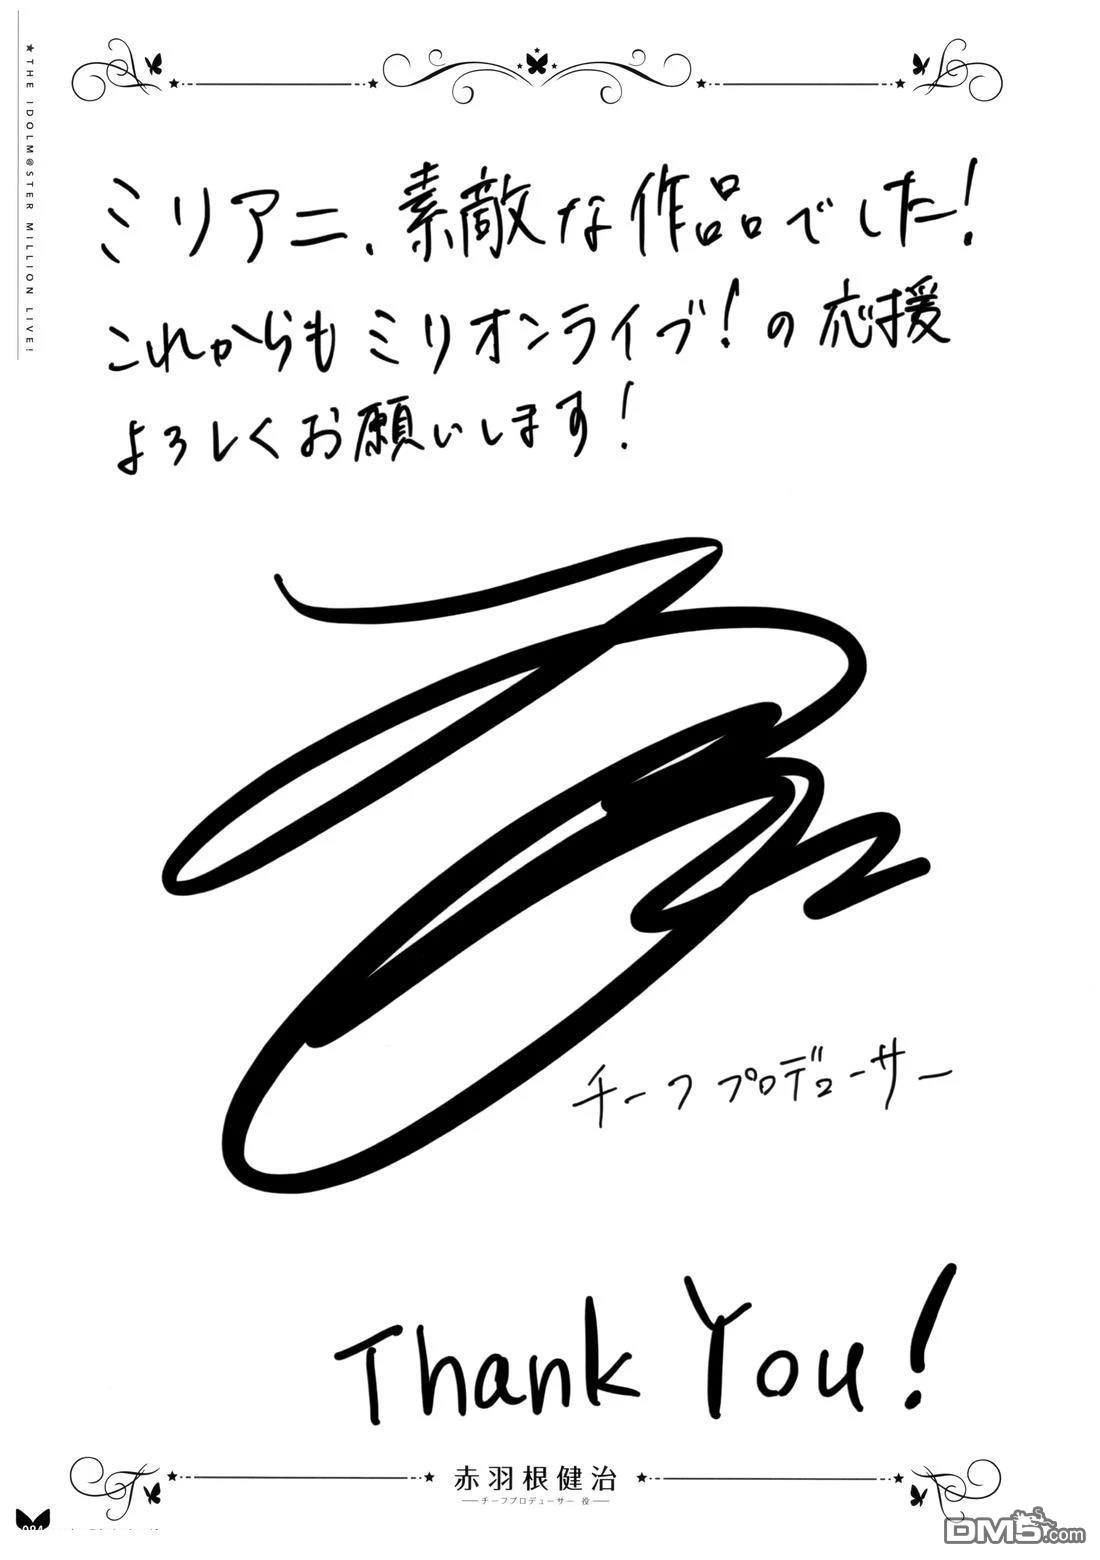 ★THE IDOLM@STER MILLION LIVE!
ミリアニ、素敵な作品でした!
これからもミリオンライブ!の応援
よろしくお願いします!
チーフプロデューサー
Thank You!
赤羽根健治
チーフプロデューサー 役
DM5.com